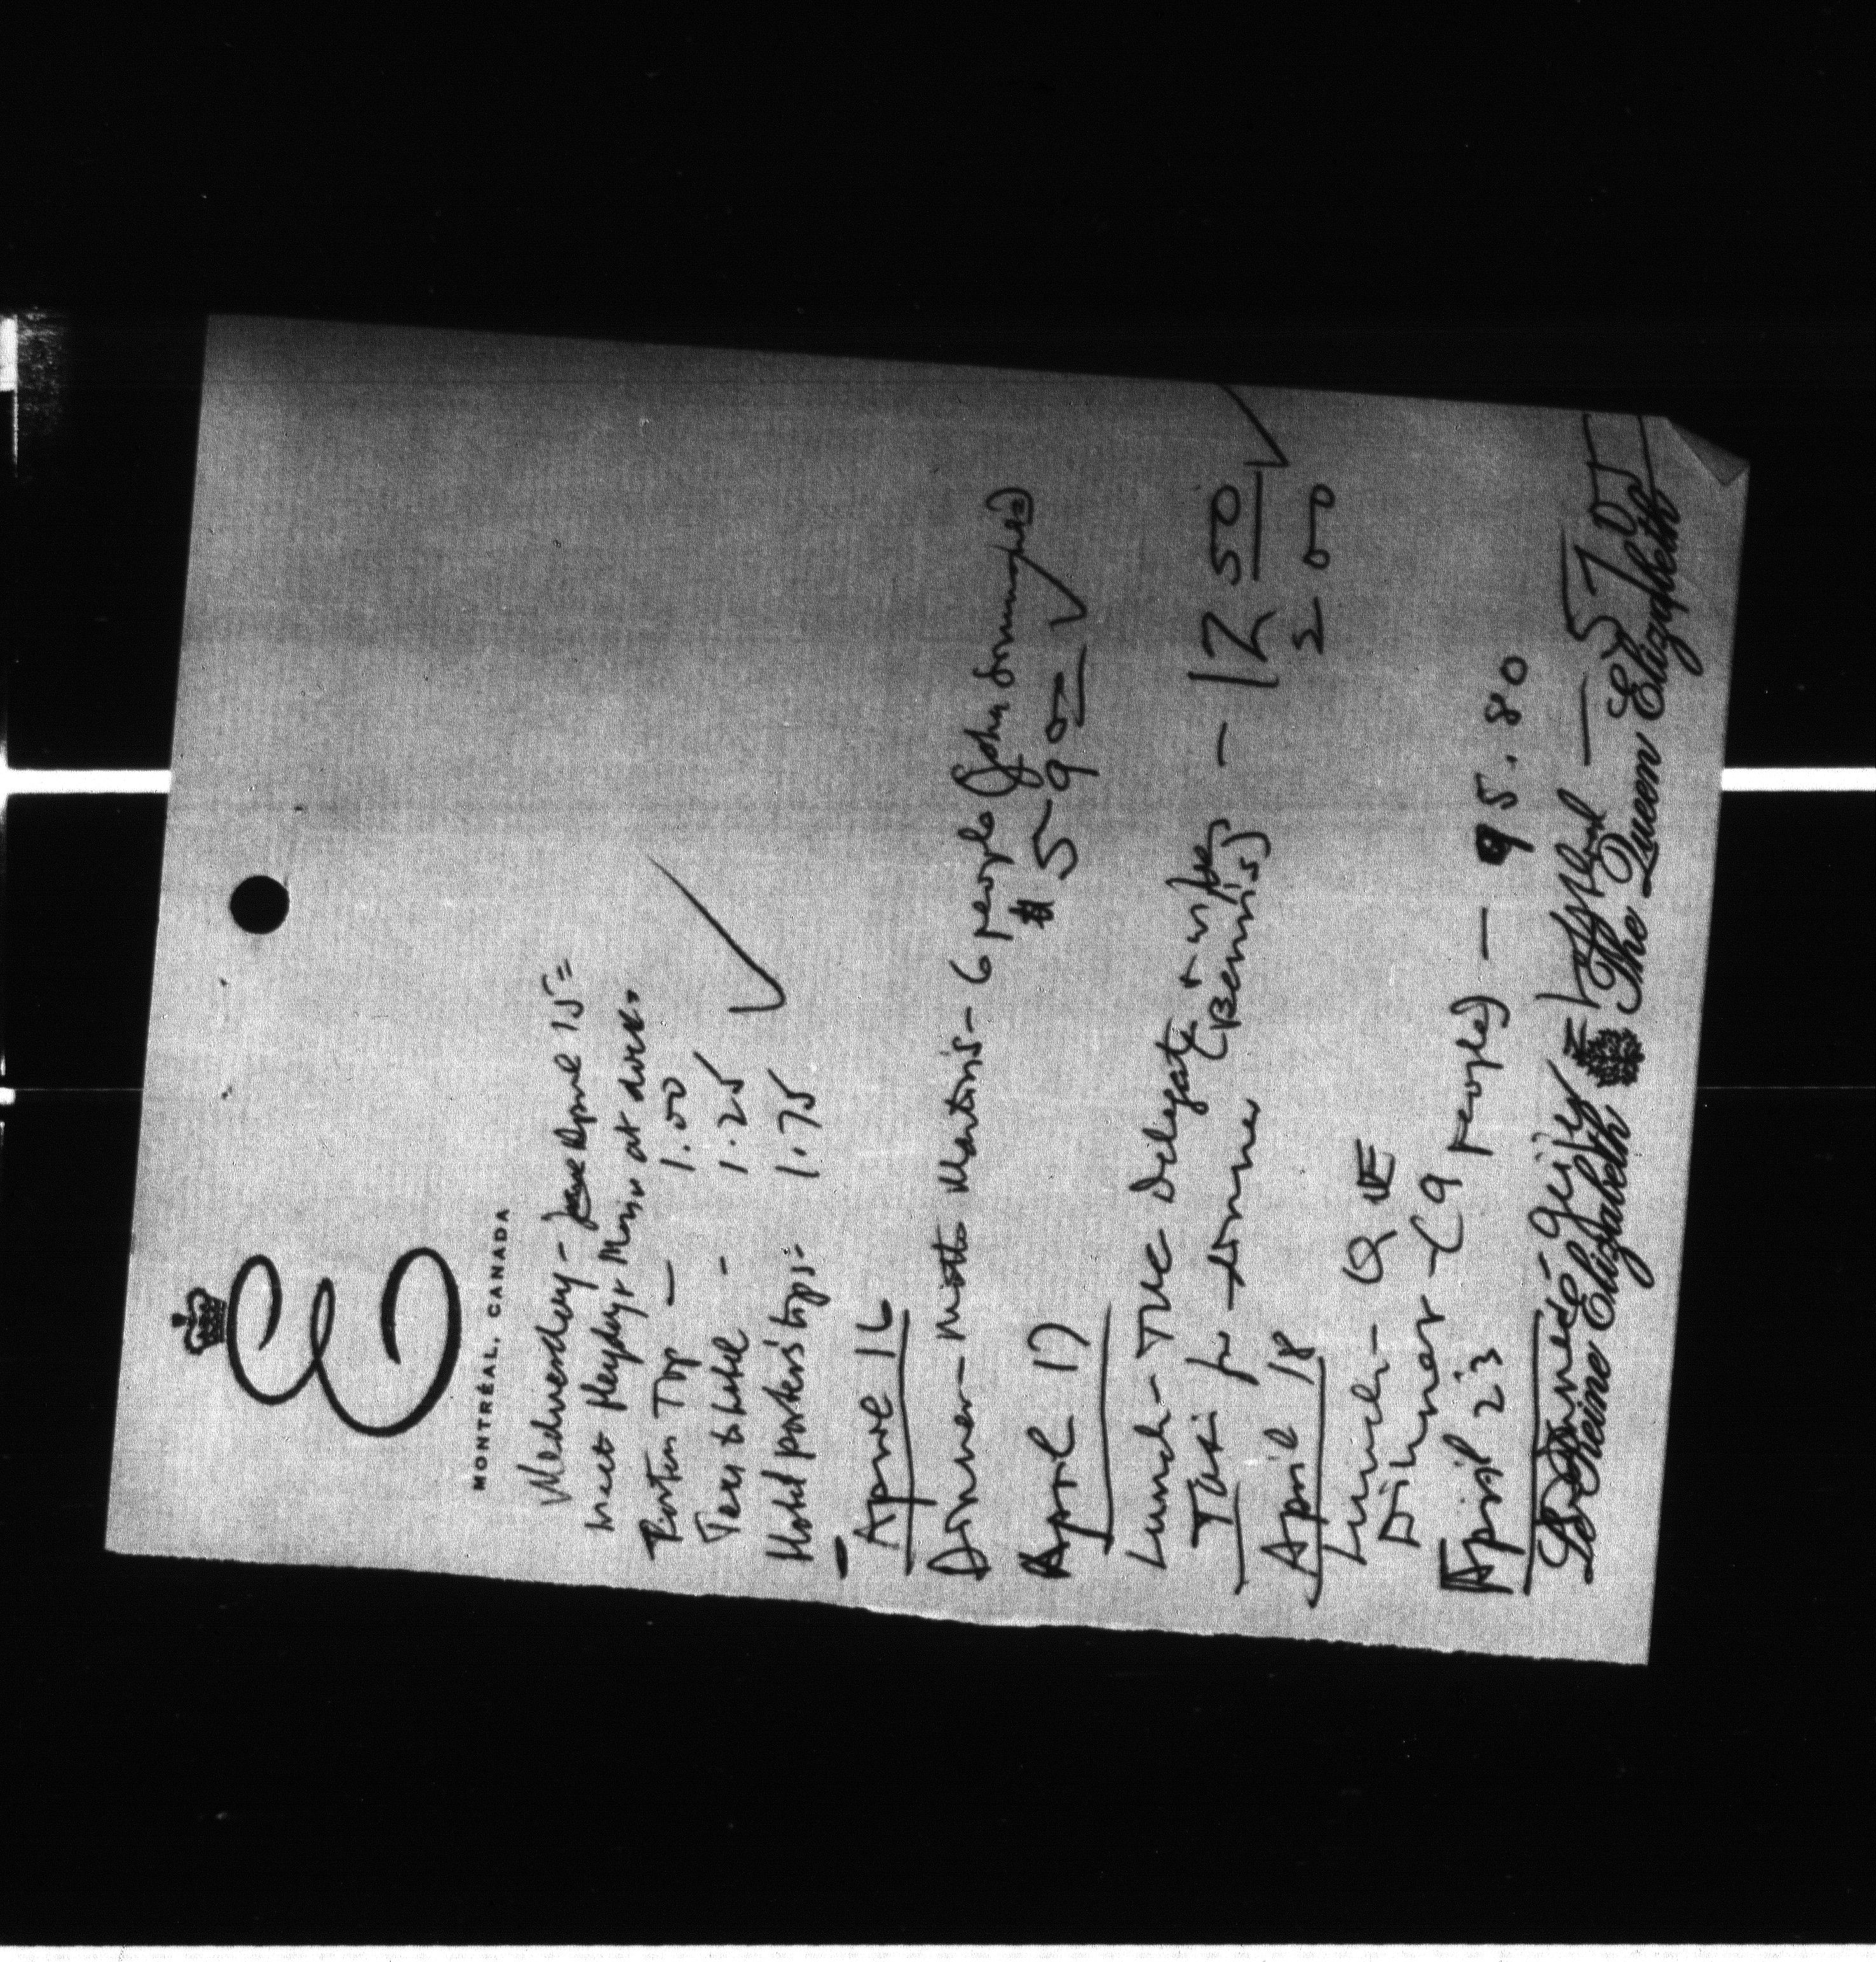 E
MONTRÉAL, CANADA
Wednesday - April 15 =
meet Heyder + Mrs. at
Porter Tip — 1.00
Taxi to hotel - 1.25
Hotel porters' tips - 1.75
April 16
Dinner - Motts Martins - 6 people (John
$ 5 90
April 17
Lunch - TVE Delegate + wife - 12 50
Taxi for dinner (Bemiss) 2 00
April 18
Lunch - Q E
Dinner - (9 people) - 95.80
April 23
57
Le Reine Elizabeth The Queen Elizabeth